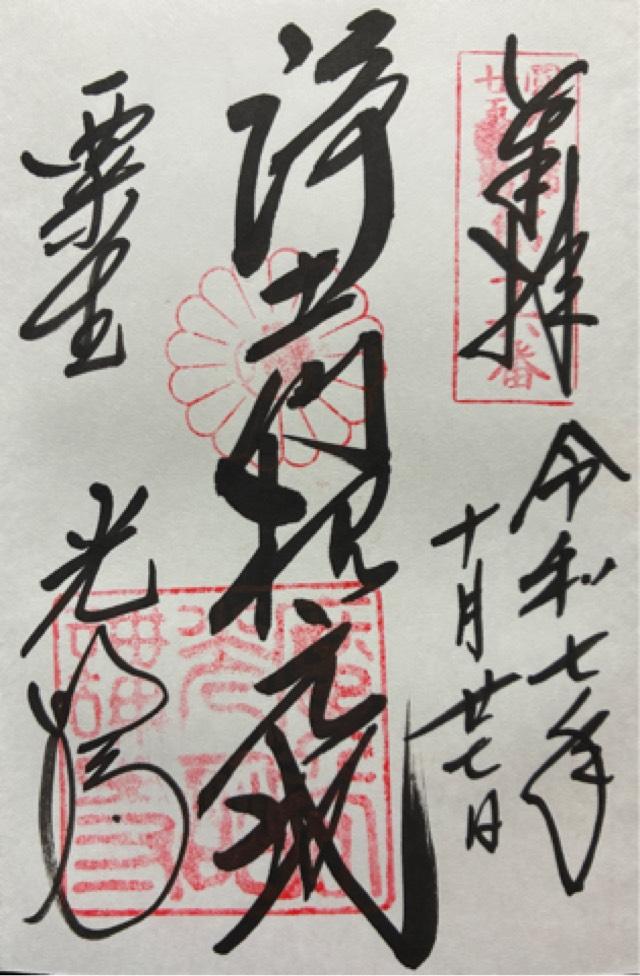 奉拝
令和七年
十月廿七日
浄土門根元地
粟生 光明寺